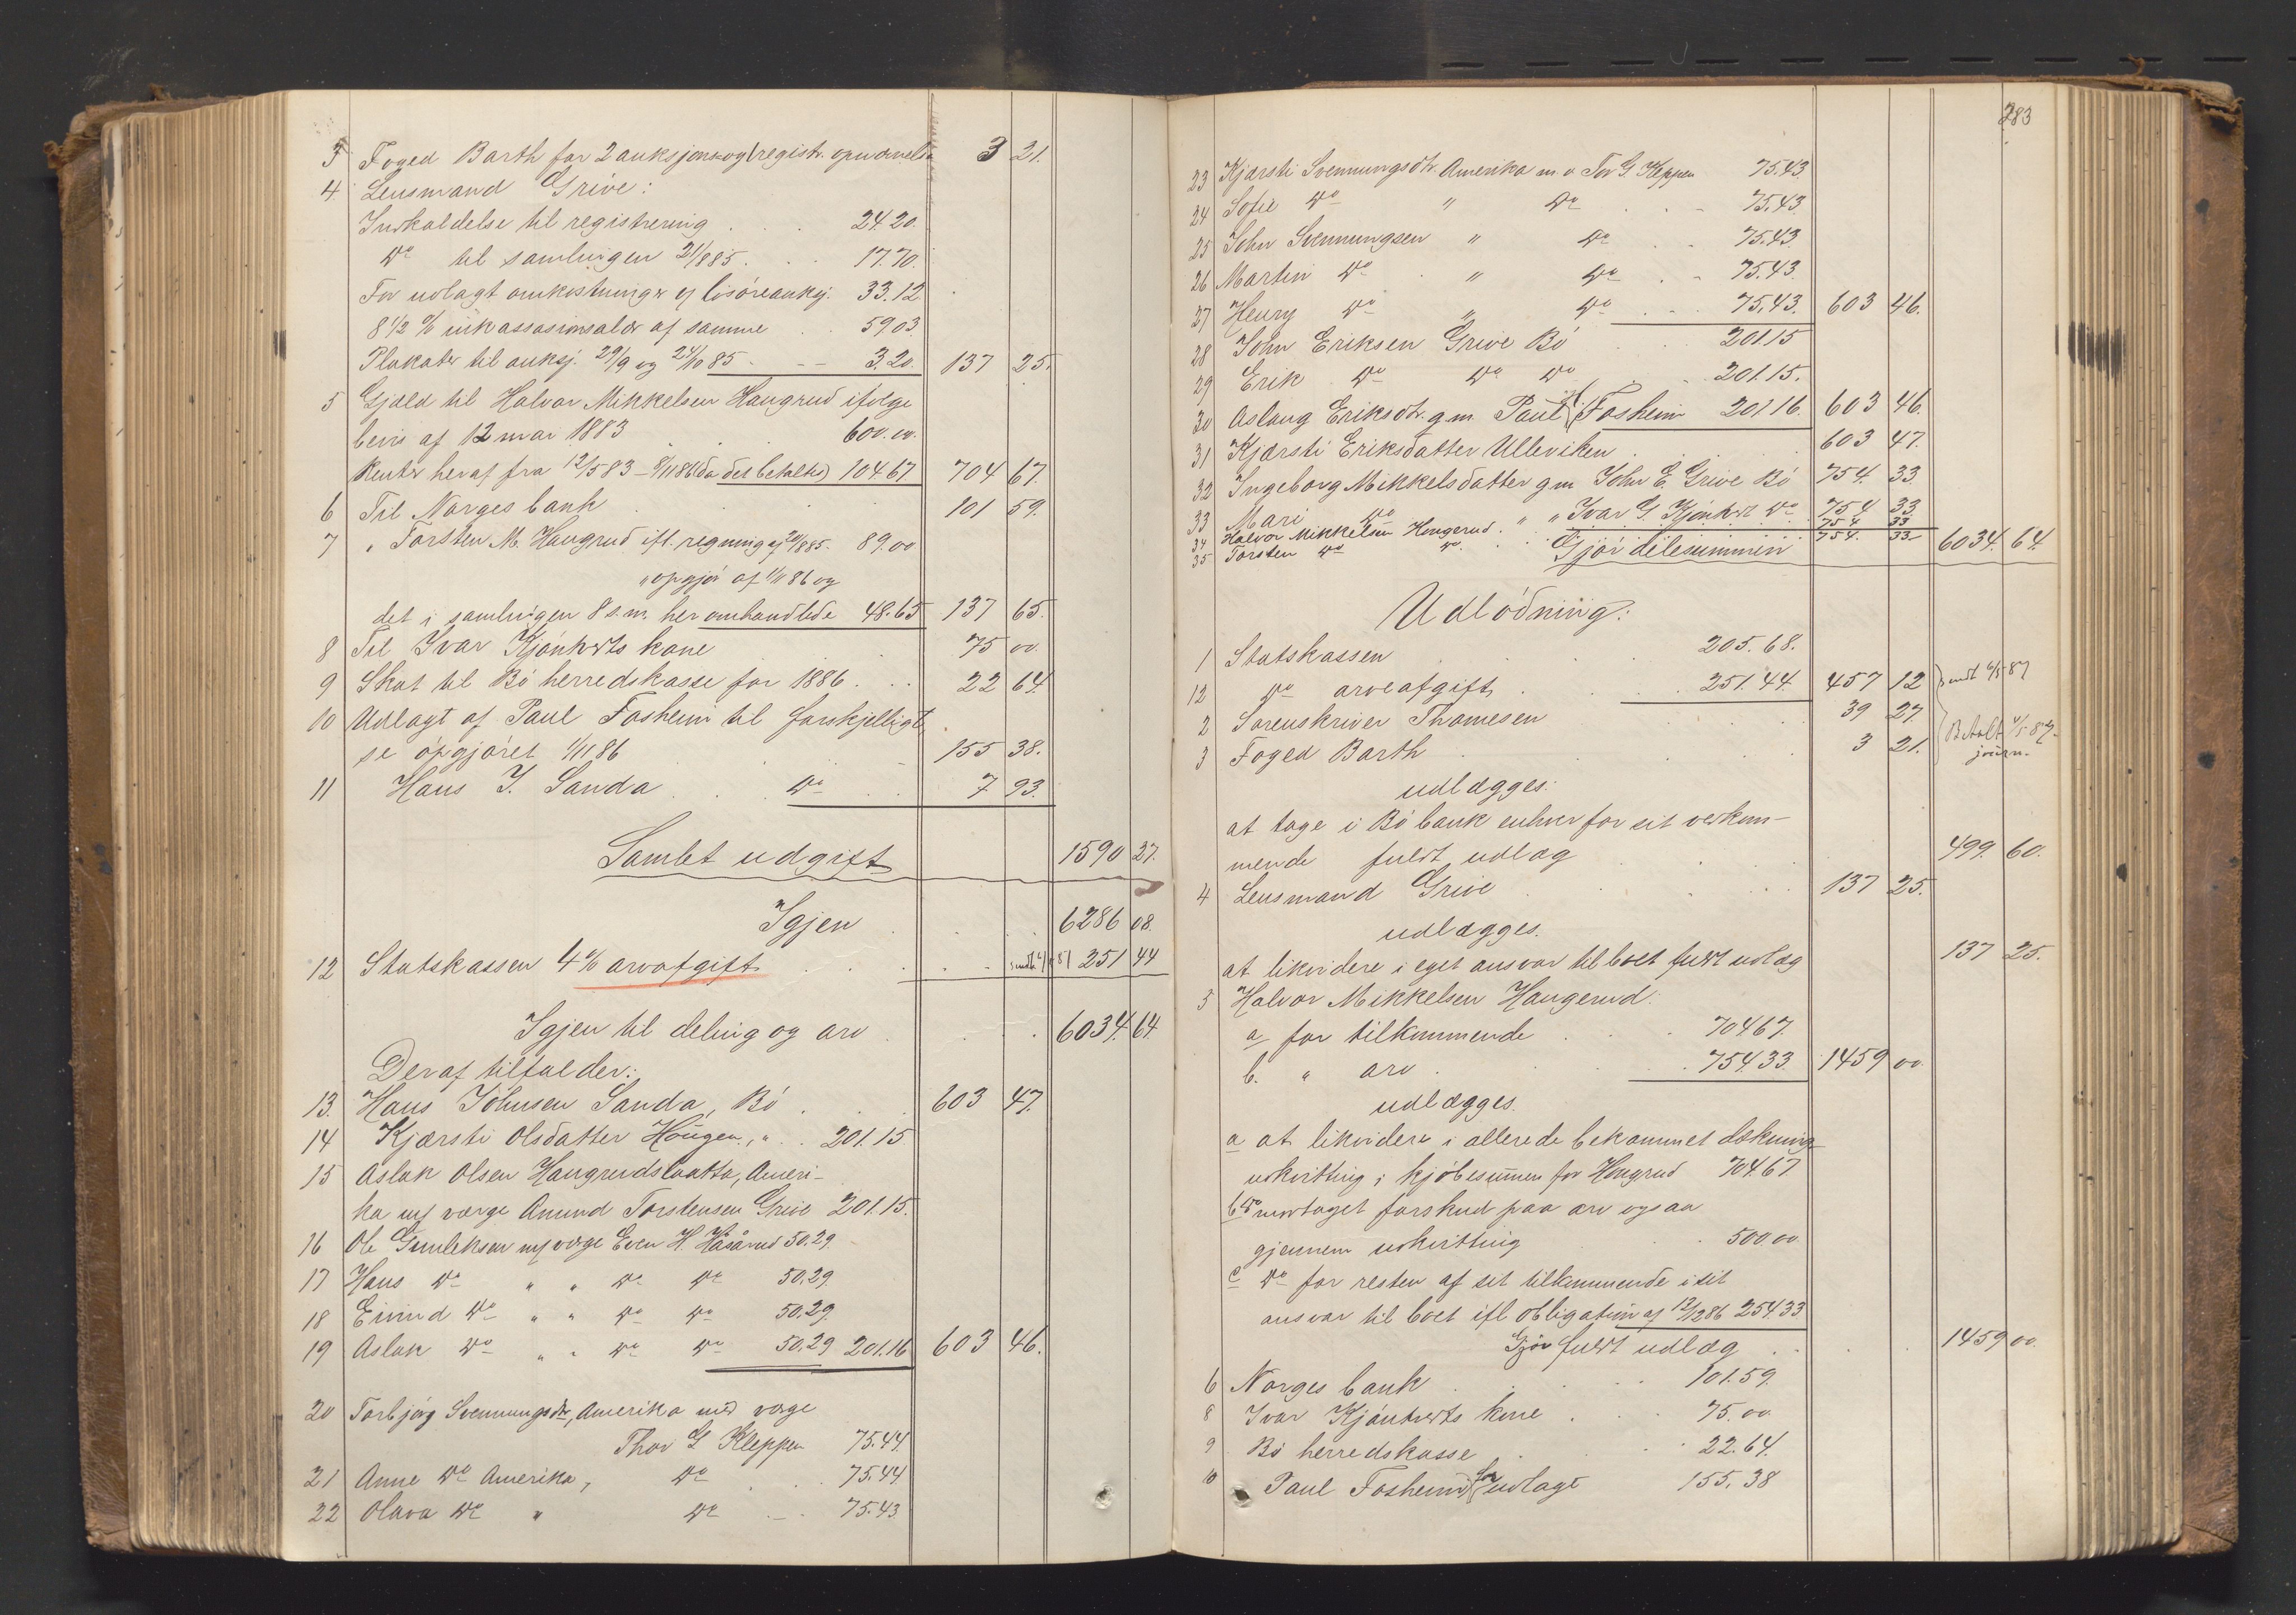 3 Foged Barth for 2 auksjons og registr. opnævnelse 3 21.
4 Lensmand Grive:
Indkaldelse til registrering 24.20.
Do til samlingen 21/885. 17.70.
For udlagt omkostninger af løsøreauksj. 33.12
8 1/2 % inkassasionsalær af samme 59.03
Plakater til auksj. 29/9 og 24/10 85 3.20. 137 25.
5 Gjæld til Halvor Mikkelsen Haugrud ifølge
bevis af 12 mai 1883 600.00.
Renter heraf fra 12/583 – 8/1186 (da det betaltes) 104.67 704 67.
6 Til Norges bank 101 59.
7 " Torsten M. Haugrud ift. regning af 20/885. 89.00
" opgjør af 1/11 86 og
det i samlingen 8 s.m. her omhandlede 48.65 137 65.
8 Til Ivar Kjønhvts kone 75 00.
9 Skat til Bø herredskasse for 1886 22 64.
10 Udlagt af Paul Fosheim til forskjelligt,
se opgjøret 1/11 86 155 38.
11 Hans J. Sanda Do 7 93.
Samlet udgift 1590 27.
Igjen 6286 08.
12 Statskassen 4% arvafgift 251 44
Igjen til deling og arv 6034. 64.
Deraf tilfalder:
13. Hans Johnsen Sanda, Bø 603 47.
14 Kjærsti Olsdatter Haugen, " 201.15
15 Aslak Olsen Haugrudslaatta, Ameri-
ka m/ værge Amund Torstensen Grive 201.15.
16 Ole Gunleksen m/ værge Even H. Håsårud 50.29.
17 Hans Do " " Do Do 50.29
18 Eivind Do " " Do Do 50.29.
19 Aslak Do " " Do Do 50.29 201.16 603 46.
20 Torbjørg Svennungsdtr, Amerika med værge
Thor G Kleppen 75.44.
21 Anne Do Amerika, Do 75.44
22 Olava Do " Do 75.43
283
23 Kjærsti Svennungsdtr. Amerika m v Tor G. Kleppen 75.43
24 Sofie Do " Do 75.43
25 John Svennungsen " Do 75.43.
26 Martin Do " Do 75.43.
27 Henry Do " Do 75.43. 603 46.
28 John Eriksen Grive Bø 201.15
29 Erik Do Do Do 201.15.
30 Aslaug Eriksdtr. g.m. Paul Fosheim 201.16. 603 46.
31 Kjærsti Eriksdatter Ulleviken 603 47.
32 Ingeborg Mikkelsdatter gm John E. Grive Bø 754. 33.
33 Mari Do " " Ivar G. Kjønhvt Do 754 33.
34 Halvor Mikkelsen Haugerud. 754. 33
35 Torsten Do Do. 754. 33
Gjør delesummen 6034. 64.
Udlodning:
1 Statskassen 205.68.
12 Do arveafgift 251.44 457 12 sendt 6/5 87
2 Sorenskriver Thomesen 39 27.
3 Foged Barth 3 21. Betalt 4/5 87. journ.
udlægges:
at tage i Bø bank enhver for sit vedkom-
mende fuldt udlæg 499. 60.
4 Lensmand Grive 137 25.
udlægges.
at likvidere i eget ansvar til boet fuldt udlæg 137 25.
5 Halvor Mikkelsen Haugerud.
a for tilkommende 704.67.
b. " arv 754.33 1459 00.
udlægges.
a at likvidere i allerede bekommet dækning
udkvittig i kjøbesummen for Haugrud 704.67
b Do modtaget forskud paa arv ogsaa
gjennem udkvittig 500.00
c Do for resten af sit tilkommende i sit
ansvar til boet ifl obligation af 12/1286 254.33
Gjør fuldt udlæg 1459 00.
6 Norges bank 101.59.
8 Ivar Kjønhvts kone 75.00
9 Bø herredskasse 22.64.
10 Paul Fosheim, for udlagt 155.38